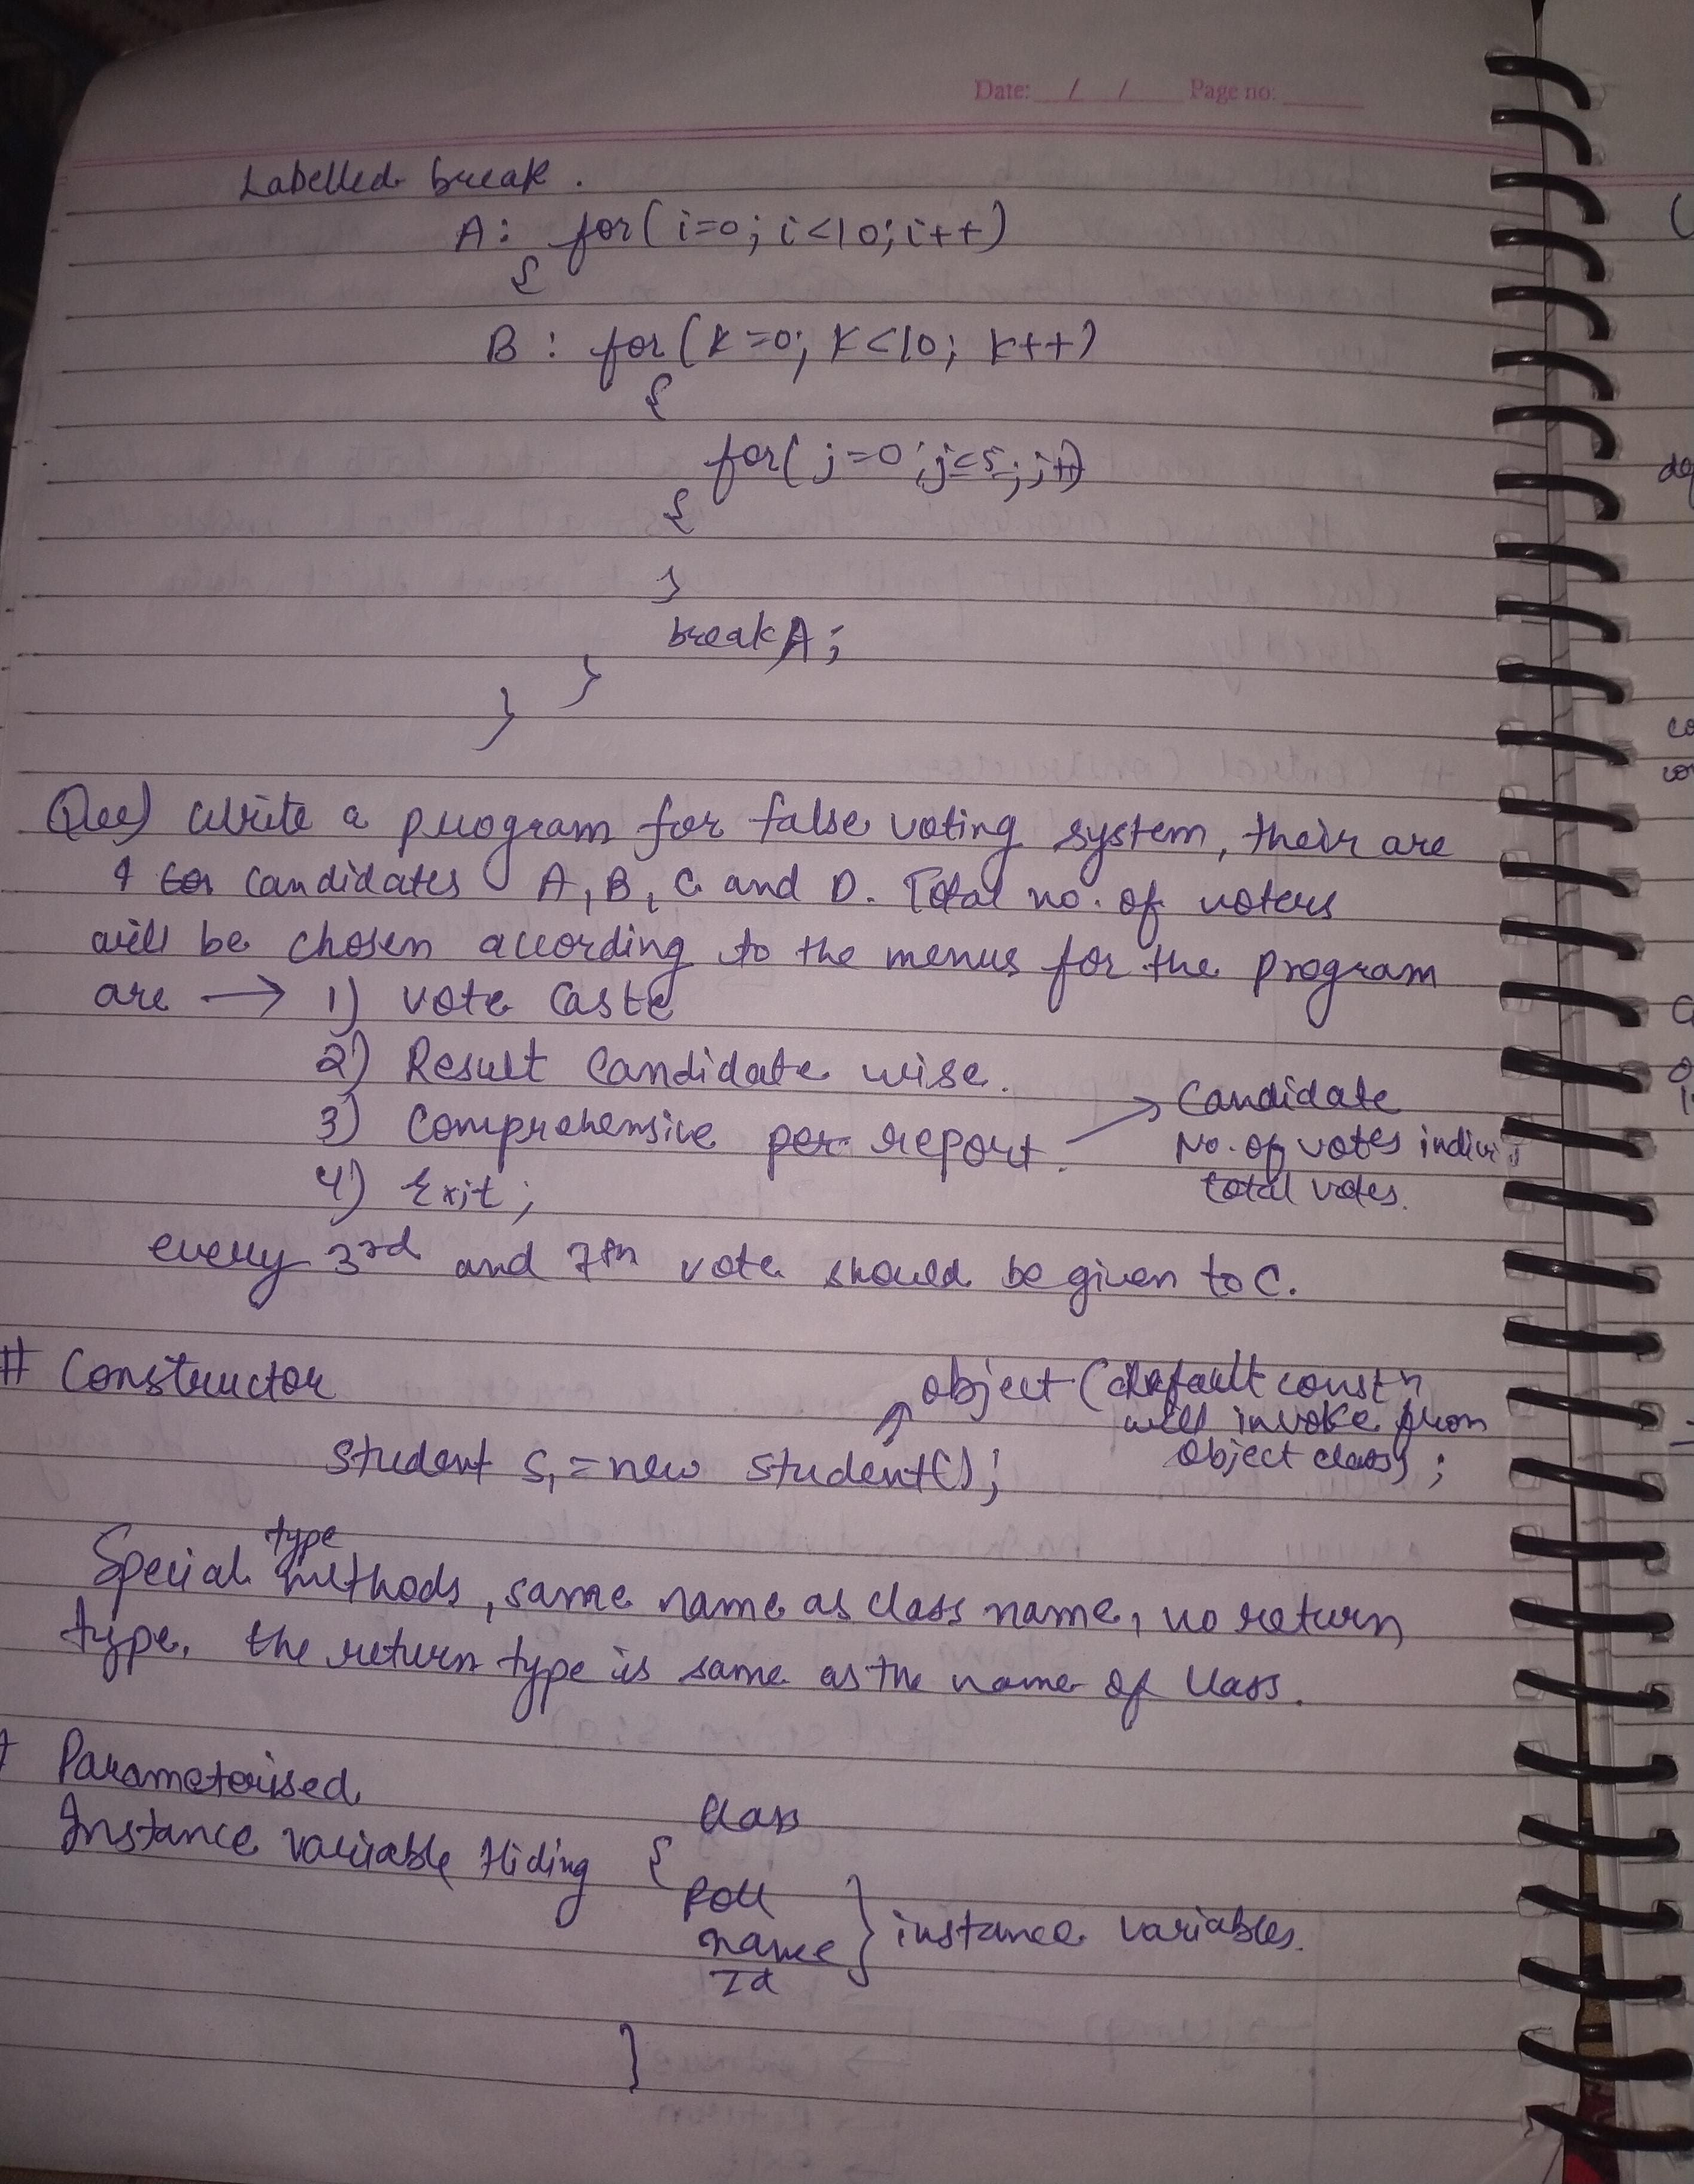 Date: / / Page no:
Labelled break.
A: for(i=0; i<10; i++)
{
B: for(k=0; k<10; k++)
{
for(j=0; j<=5; j++)
{
}
break A;
}
}
Que) Write a program for false voting system, their are
4 candidates A, B, C and D. Total no. of voters
will be chosen according to the menus for the program
are → 1) Vote Caste
2) Result Candidate wise.
3) Comprehensive report. → Candidate
No. of votes indivi
total votes.
4) Exit;
every 3rd and 7th vote should be given to C.
# Constructor
object (default constn
will invoke from
Object class);
Student S1 = new student();
Special type methods, same name as class name, no return
type. the return type is same as the name of class.
Parameterised
Instance variable Hiding { Class
Roll
name } instance variables.
Id
}